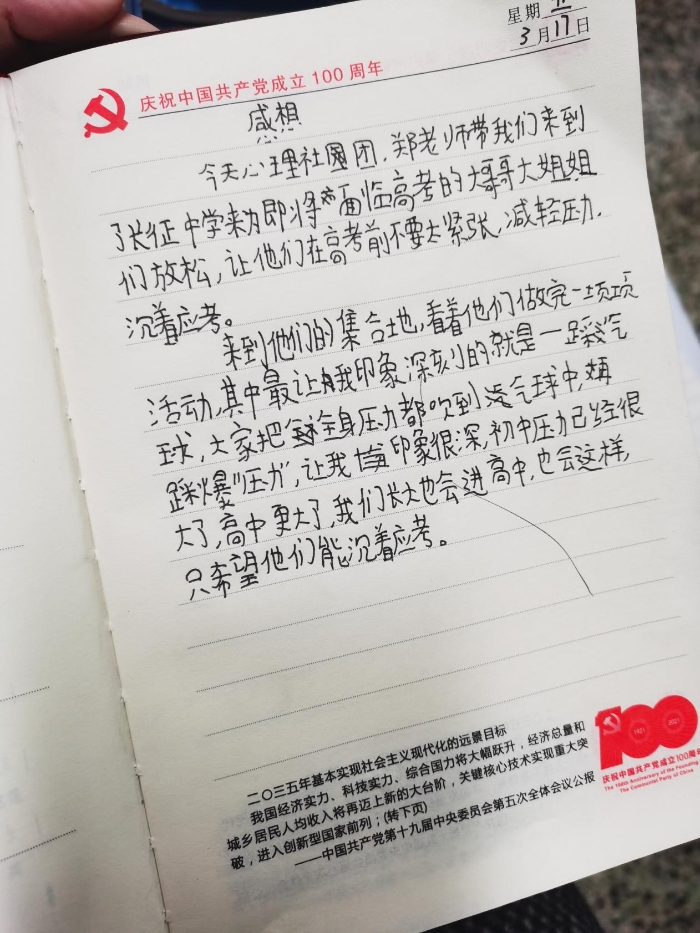 星期五
3月17日
庆祝中国共产党成立100周年
感想
今天心理社团,郑老师带我们来到
了长征中学来为即将面临高考的大哥哥大姐姐
们放松,让他们在高考前不要太紧张,减轻压力,
沉着应考。
来到他们的集合地,看着他们做完一项项
活动,其中最让我印象深刻的就是一踩气
球,大家把全身压力都吹到气球中,再
踩爆"压力",让我印象很深,初中压力已经很
大了,高中更大了,我们长大也会进高中,也会这样,
只希望他们能沉着应考。
二〇三五年基本实现社会主义现代化的远景目标
我国经济实力、科技实力、综合国力将大幅跃升,经济总量和
城乡居民人均收入将再迈上新的大台阶,关键核心技术实现重大突
破,进入创新型国家前列;(转下页)
——中国共产党第十九届中央委员会第五次全体会议公报
100
1921 2021
庆祝中国共产党成立100周年
The 100th Anniversary of the Founding of
The Communist Party of China